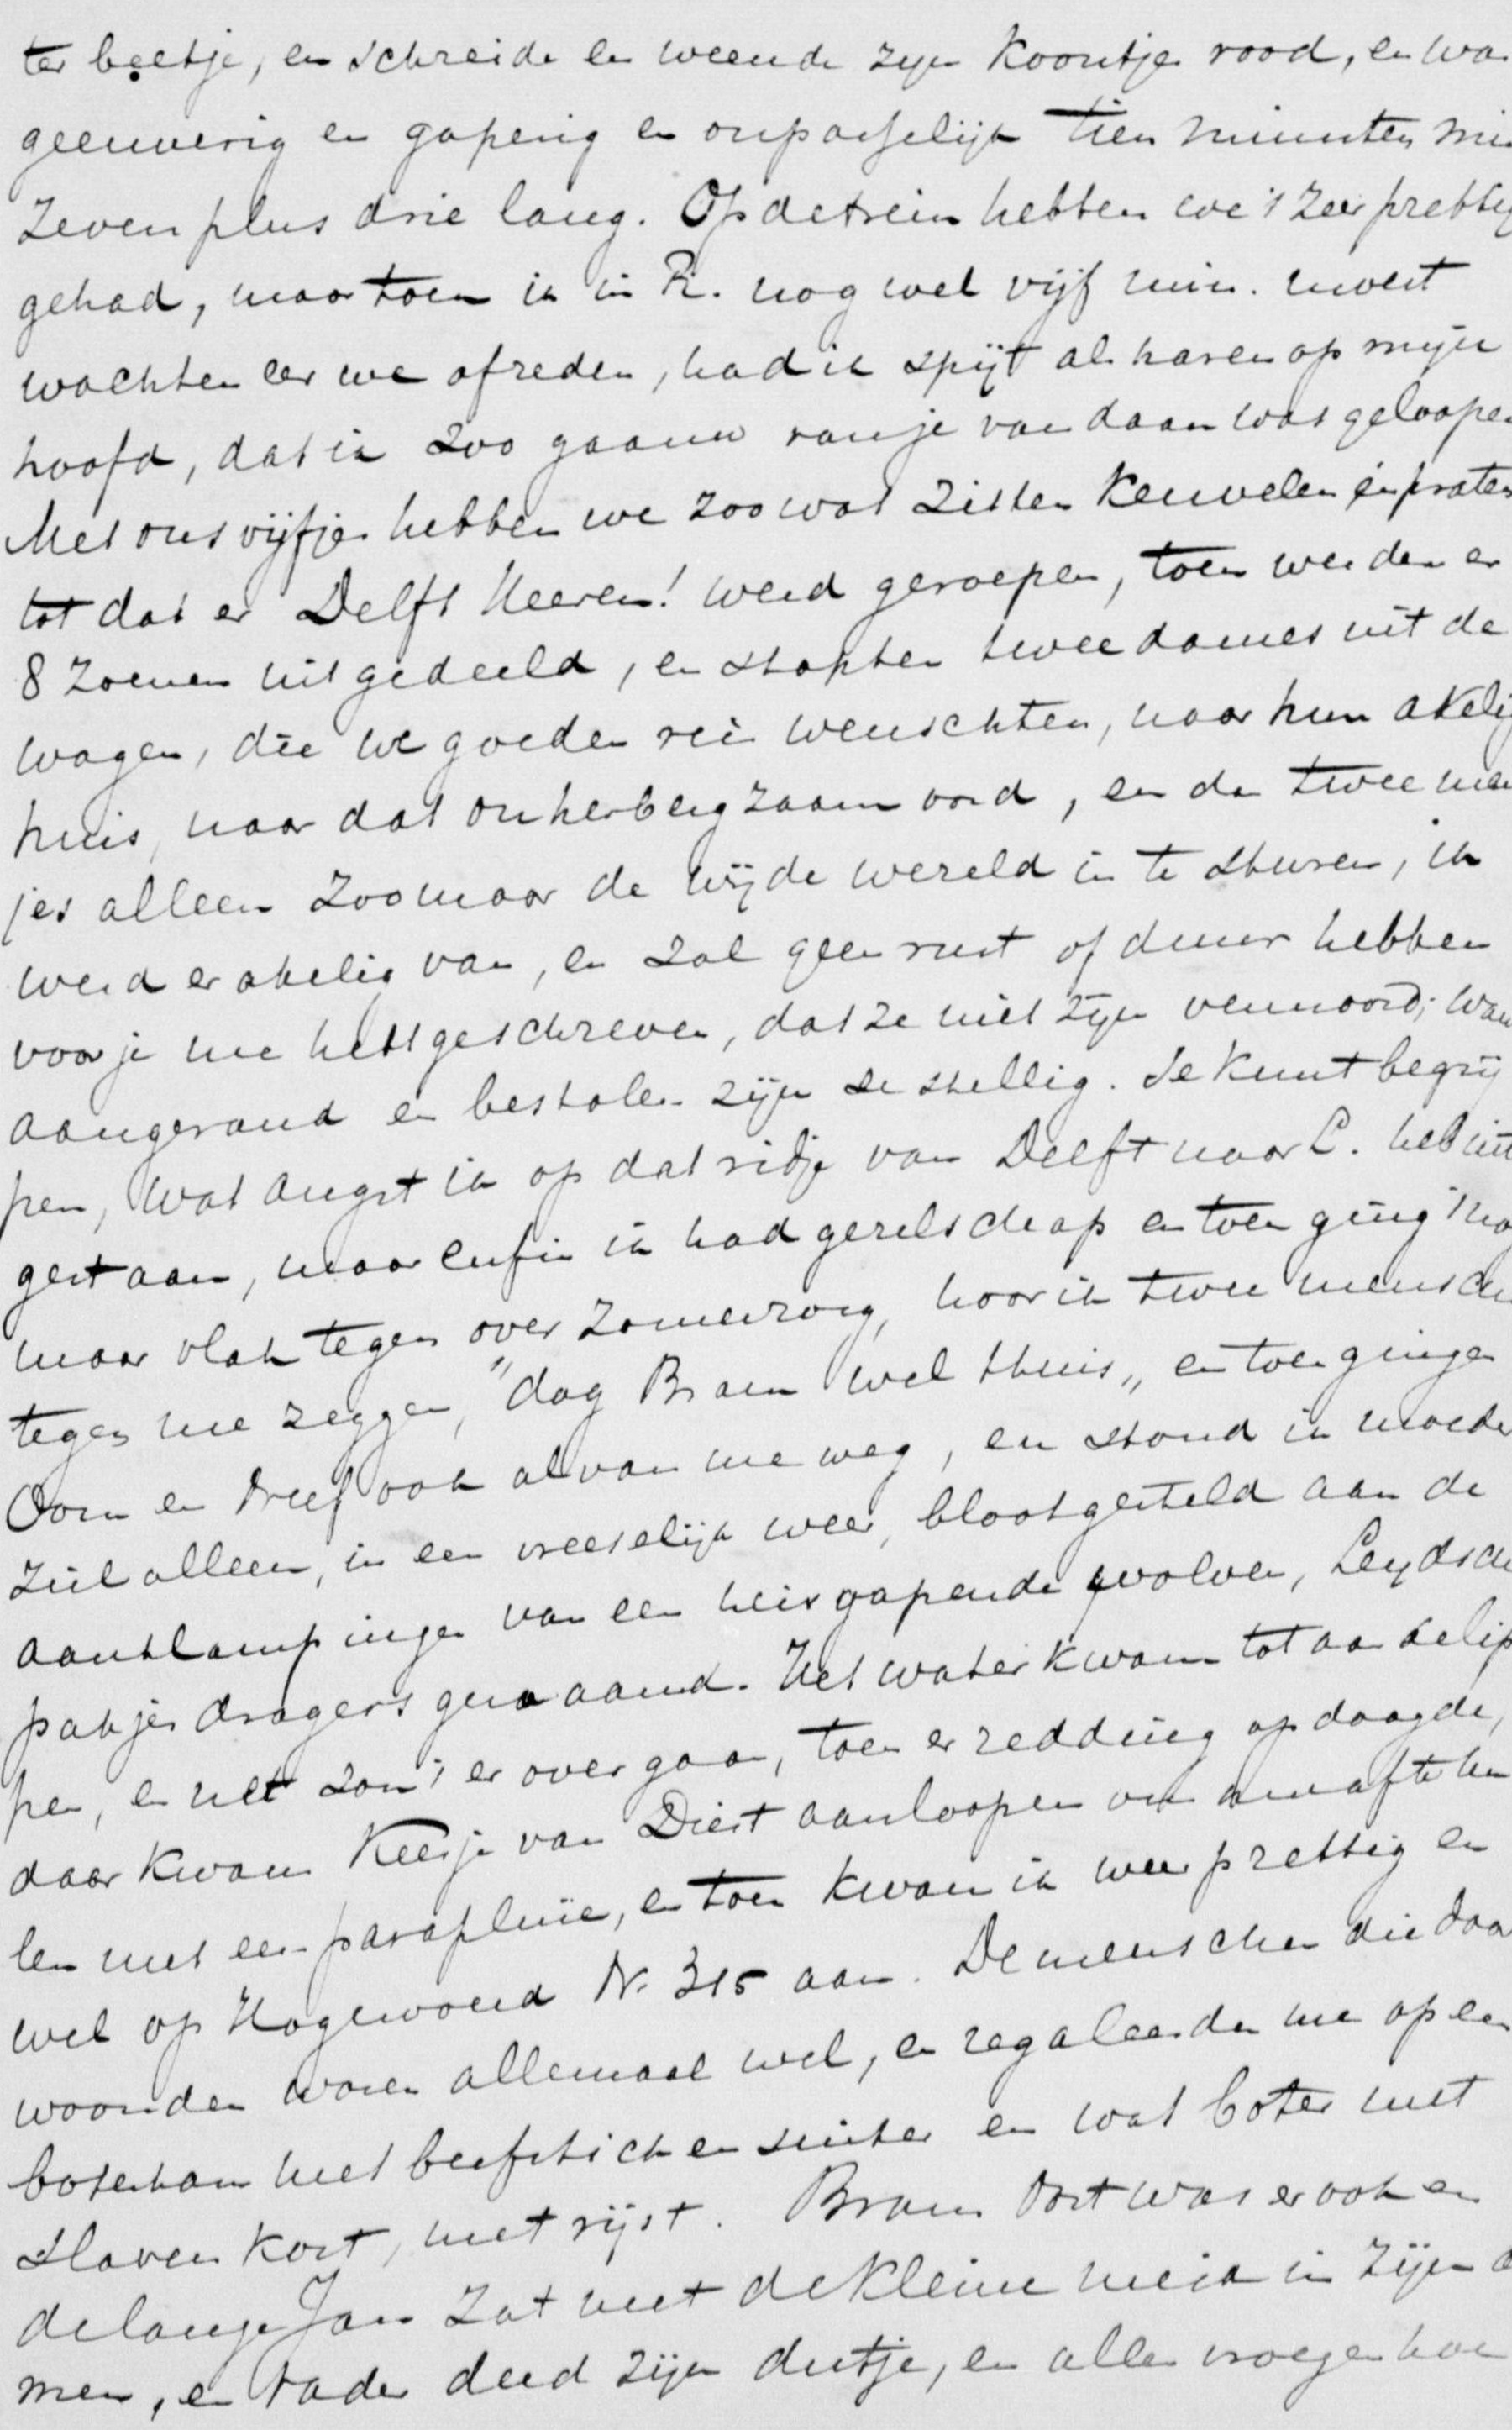 ter beetje, en schreide en weende zijn koontjes rood, en wa
geeuwerig en gaperig en onpasselijk tien minuten mi
zeven plus drie lang. Op de trein hebben we 't zeer prettig
gehad, maar toen ik in R. nog wel vijf min. moest
wachten eer we afreden, had ik spijt als haren op mijn
hoofd, dat ik zoo gaauw van je vandaan was geloopen
Met ons vijfjes hebben we zoo wat zitten keuvelen en praten
tot dat er Delft Heeren! werd geroepen, toen werden er
8 zoenen uitgedeeld, en stapten twee dames uit de
wagen, die we goeden reis wenschten, naar hun akelig
huis, naar dat onherbergzaam oord, en de twee men
jes alleen zoomaar de wijde wereld in te sturen, ik
werd er akelig van, en zal geen rust of duur hebben
voor je me hebt geschreven, dat ze niet zijn vermoord; wan
aangerand en bestolen zijn ze stellig. Je kunt begrij
pen, wat angst ik op dat ridje van Delft naar L. heb uit
gestaan, maar enfin ik had gezelschap en toen ging 't no
maar vlak tegen over Zomerzorg, hoor ik twee menschen
tegen me zeggen, "dag Bram wel thuis„ en toen gingen
Oom en Neef ook al van me weg, en stond ik moeder
ziel alleen, in een vreeselijk weer, blootgesteld aan de
aanklampingen van een heir gapende wolven, Leydsche
pakjesdragers genaamd. Het water kwam tot aan de lip
pen, en net zou 't er over gaan, toen er redding opdaagde,
daar kwam Keesje van Diest aanloopen om me af te ha
len met een parapluie, en toen kwam ik weer prettig en
wel op Hogewoerd N. 315 aan. De menschen die daar
woonden waren allemaal wel, en regaleerden me op een
boterham met beefstick en suiker en wat boter met
slaven kost, met rijst. Bram Oort was er ook en
de lange Jan zat met de kleine meid in zijn a
men, en Vader deed zijn dutje, en allen vroegen hoe